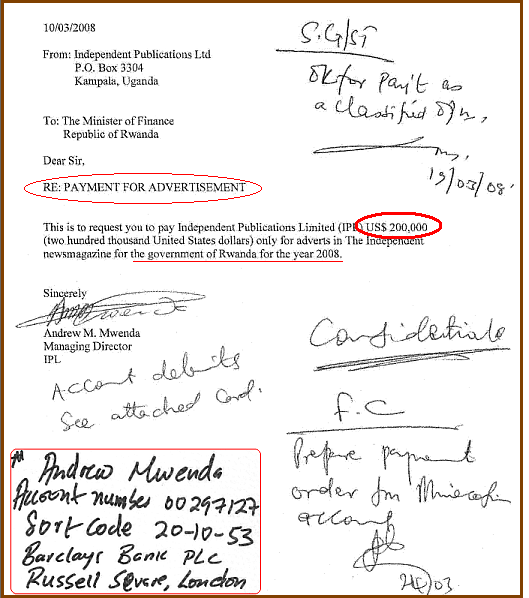 10/03/2008
From: Independent Publications Ltd
P.O. Box 3304
Kampala, Uganda
To: The Minister of Finance
Republic of Rwanda
Dear Sir,
RE: PAYMENT FOR ADVERTISEMENT
This is to request you to pay Independent Publications Limited (IPL) US$ 200,000
(two hundred thousand United States dollars) only for adverts in The Independent
newsmagazine for the government of Rwanda for the year 2008.
Sincerely
Andrew M. Mwenda
Managing Director
IPL
Account details
See attached Card.
Andrew Mwenda
Account number 00297127
Sort Code 20-10-53
Barclays Bank PLC
Russell Square, London
S.G/ST
OK for Pay't as
a classified
19/03/08
Confidentiale
F.C
Prepare payment
order from Minecofin
account